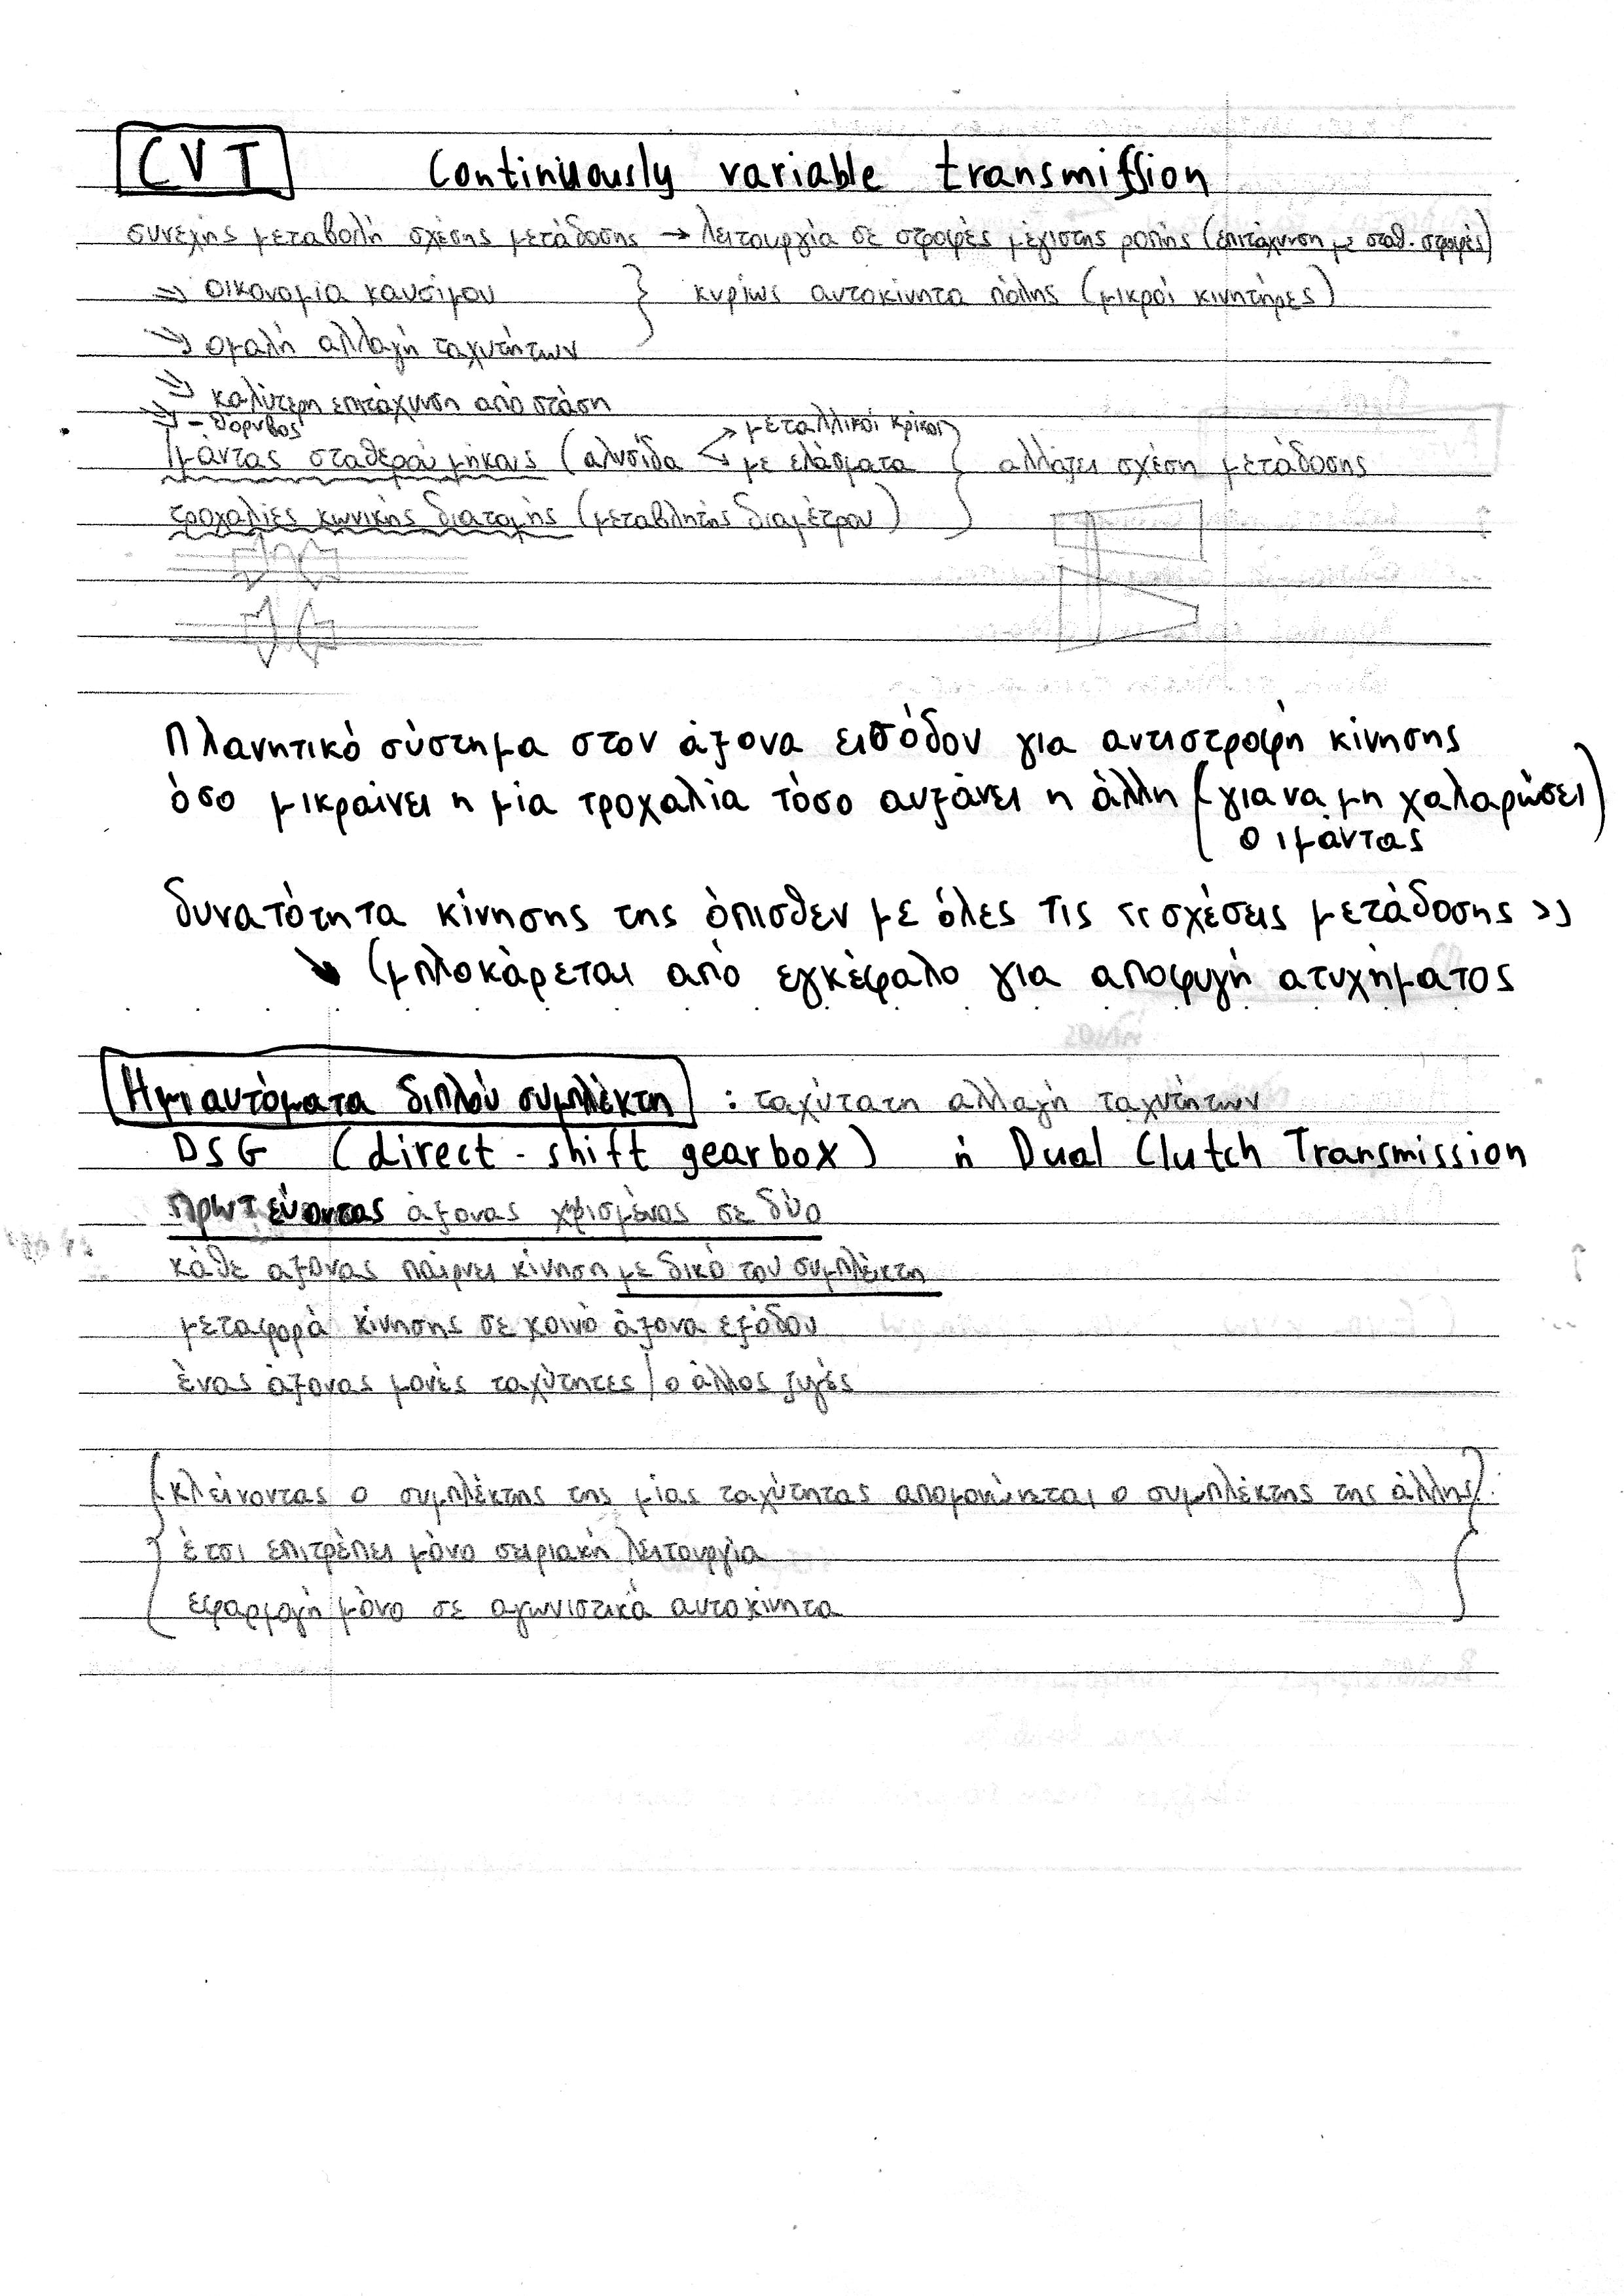 CVT Continuously variable transmission
συνεχής μεταβολή σχέσης μετάδοσης → λειτουργία σε στροφές μέγιστης ροπής (επιτάχυνση με σταθ. στροφές)
⇒ οικονομία καυσίμου } κυρίως αυτοκίνητα πόλης (μικροί κινητήρες)
⇒ ομαλή αλλαγή ταχυτήτων
⇒ καλύτερη επιτάχυνση από στάση
⇒ - θόρυβος
ιμάντας σταθερού μήκους (αλυσίδα < μεταλλικοί κρίκοι
με ελάσματα } αλλάζει σχέση μετάδοσης
τροχαλίες κωνικής διατομής (μεταβλητής διαμέτρου)
Πλανητικό σύστημα στον άξονα εισόδου για αντιστροφή κίνησης
όσο μικραίνει η μία τροχαλία τόσο αυξάνει η άλλη (για να μη χαλαρώσει
ο ιμάντας)
δυνατότητα κίνησης της όπισθεν με όλες τις «σχέσεις μετάδοσης»
↘ (μπλοκάρεται από εγκέφαλο για αποφυγή ατυχήματος
Ημιαυτόματα διπλού συμπλέκτη : ταχύτατη αλλαγή ταχυτήτων
DSG (direct - shift gearbox) ή Dual Clutch Transmission
πρωτεύοντας άξονας χωρισμένος σε δύο
κάθε άξονας παίρνει κίνηση με δικό του συμπλέκτη
μεταφορά κίνησης σε κοινό άξονα εξόδου
ένας άξονας μονές ταχύτητες / ο άλλος ζυγές
{κλείνοντας ο συμπλέκτης της μίας ταχύτητας απομονώνεται ο συμπλέκτης της άλλης}
έτσι επιτρέπει μόνο σειριακή λειτουργία
εφαρμογή μόνο σε αγωνιστικά αυτοκίνητα